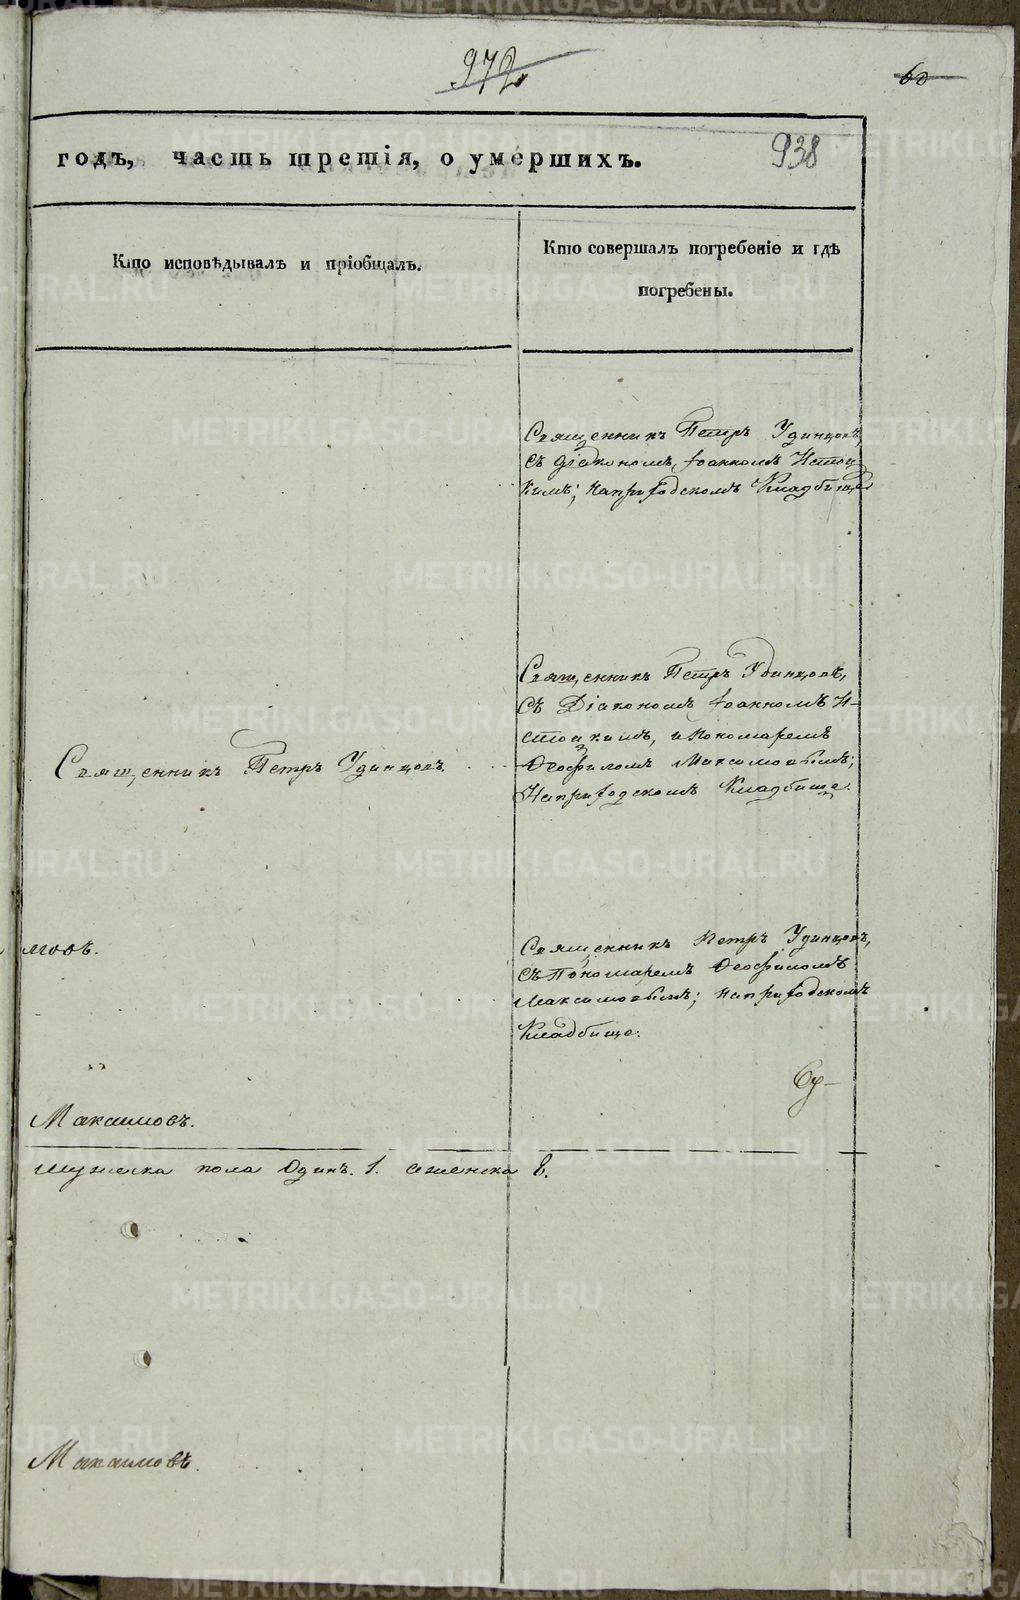 972
60
938
годъ, часть третія, о умершихъ.
Кто исповѣдывалъ и пріобщалъ.
Кто совершалъ погребеніе и гдѣ
погребены.
Священникъ Петръ Удинцовъ,
съ діакономъ, Іоанномъ Истоц-
кимъ; наприходскомъ Кладбище
Священникъ Петръ Удинцовъ,
Съ Діакономъ Іоанномъ И-
стоцкимъ, и Пономаремъ
Ѳеофиломъ Максимовымъ;
Наприходскомъ Кладбище.
Священникъ Петръ Удинцовъ.
мовъ.
Священникъ Петръ Удинцовъ,
съ Пономаремъ Ѳеофиломъ
Максимовымъ; наприходскомъ
Кладбище.
Максимовъ.
мужеска пола Одинъ. 1. аженска
Максимовъ.
METRIKI.GASO-URAL.RU